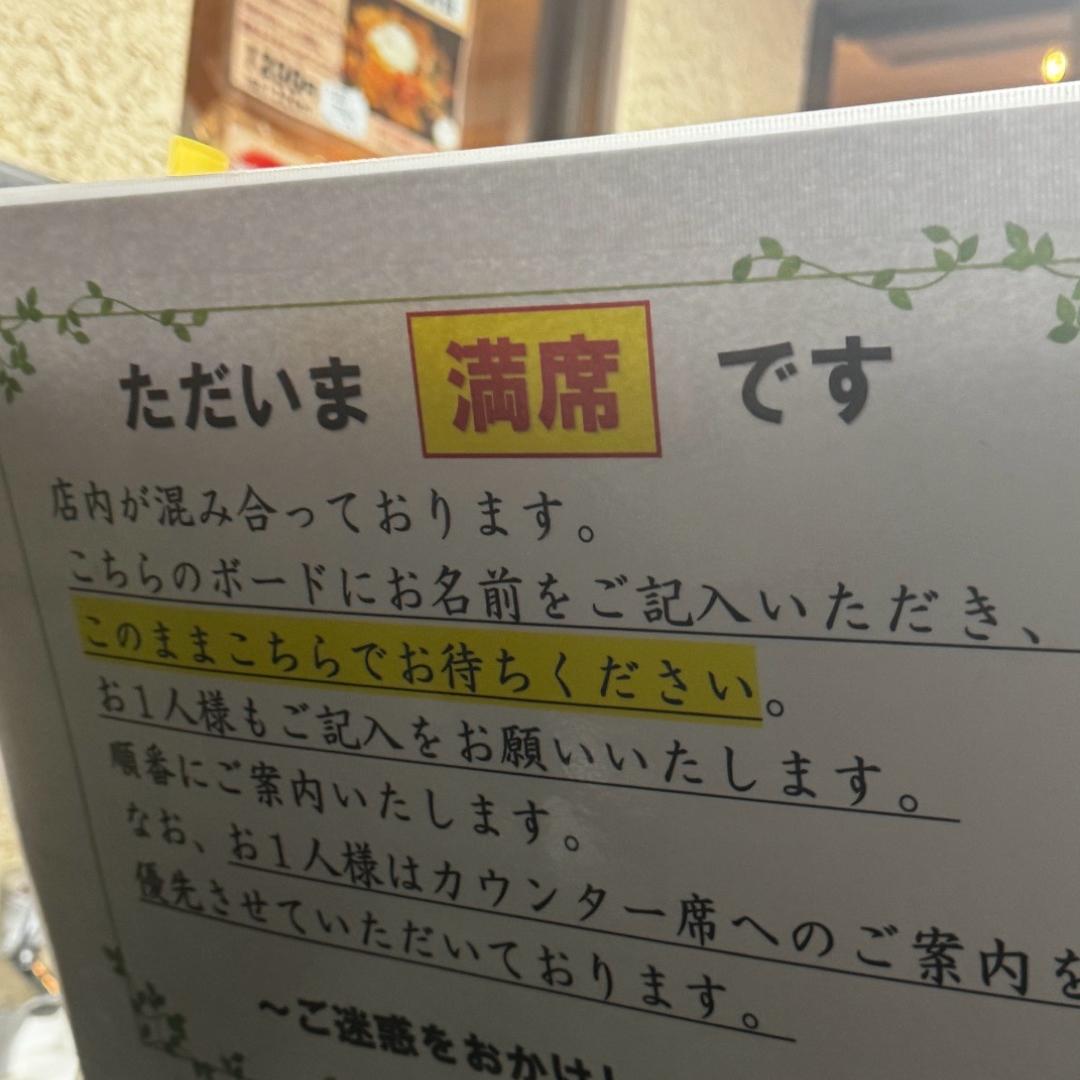 ただいま 満席 です
店内が混み合っております。
こちらのボードにお名前をご記入いただき、
このままこちらでお待ちください。
お1人様もご記入をお願いいたします。
順番にご案内いたします。
なお、お1人様はカウンター席へのご案内を
優先させていただいております。
～ご迷惑をおかけし